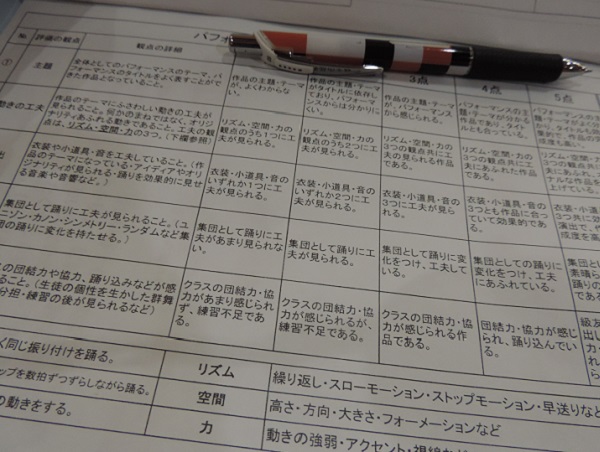 № 評価の観点
観点の詳細
パフォ
3点
4点
5点
①
主題
全体としてのパフォーマンスのテーマ、パフォ
ーマンスのタイトルをよく表すことがで
きた作品となっていること。
作品の主題・テーマ
が、よくわからない。
作品の主題・テー
マがタイトルに依存し
ており、パフォーマン
スからは分かりにくい。
作品の主題・テーマ
が、パフォーマンス
から感じられる。
動きの工夫
作品のテーマにふさわしい動きの工夫が
見られること。何かのまねではなく、オリジ
ナリティあふれる動きであること。工夫の観
点は、リズム・空間・力の3つ。(下欄参照)
リズム・空間・力の
観点のうち1つに工
夫が見られる。
リズム・空間・力の
観点のうち2つに工
夫が見られる。
リズム・空間・力の
3つの観点共に工
夫の見られる作品
である。
リズム・空間・力の
3つの観点共に工
夫にあふれた作品
である。
衣装や小道具・音を工夫していること。(作
品のテーマになっている・アイディアやオリ
ジナリティが見られる・踊りを効果的に見せ
る音楽や音響など。)
衣装・小道具・音の
いずれか1つに工
夫が見られる。
衣装・小道具・音の
いずれか2つに工
夫が見られる。
衣装・小道具・音の
3つに工夫が見ら
れる。
衣装・小道具・音の
3つとも作品に合っ
ていて効果的であ
る。
集団として踊りに工夫が見られること。(ユ
ニゾン・カノン・シンメトリー・ランダムなど集
団の踊りに変化を持たせる。)
集団として踊りに工
夫があまり見られな
い。
集団として踊りに工
夫が見られる。
集団として踊りに変
化をつけ、工夫して
いる。
集団としての踊りに
変化をつけ、工夫
にあふれている。
スの団結力や協力、踊り込みなどが感
ること。(生徒の個性を生かした群舞
分担・練習の後が見られるなど)
クラスの団結力・協
力があまり感じられ
ず、練習不足であ
る。
クラスの団結力・協
力が感じられるが、
練習不足である。
クラスの団結力・協
力が感じられる作
品である。
団結力・協力が感じ
られ、踊り込んでい
る。
く同じ振り付けを踊る。
リズム
繰り返し・スローモーション・ストップモーション・早送りなど
ップを数拍ずつずらしながら踊る。
空間
高さ・方向・大きさ・フォーメーションなど
の動きをする。
力
動きの強弱・アクセント・視線など